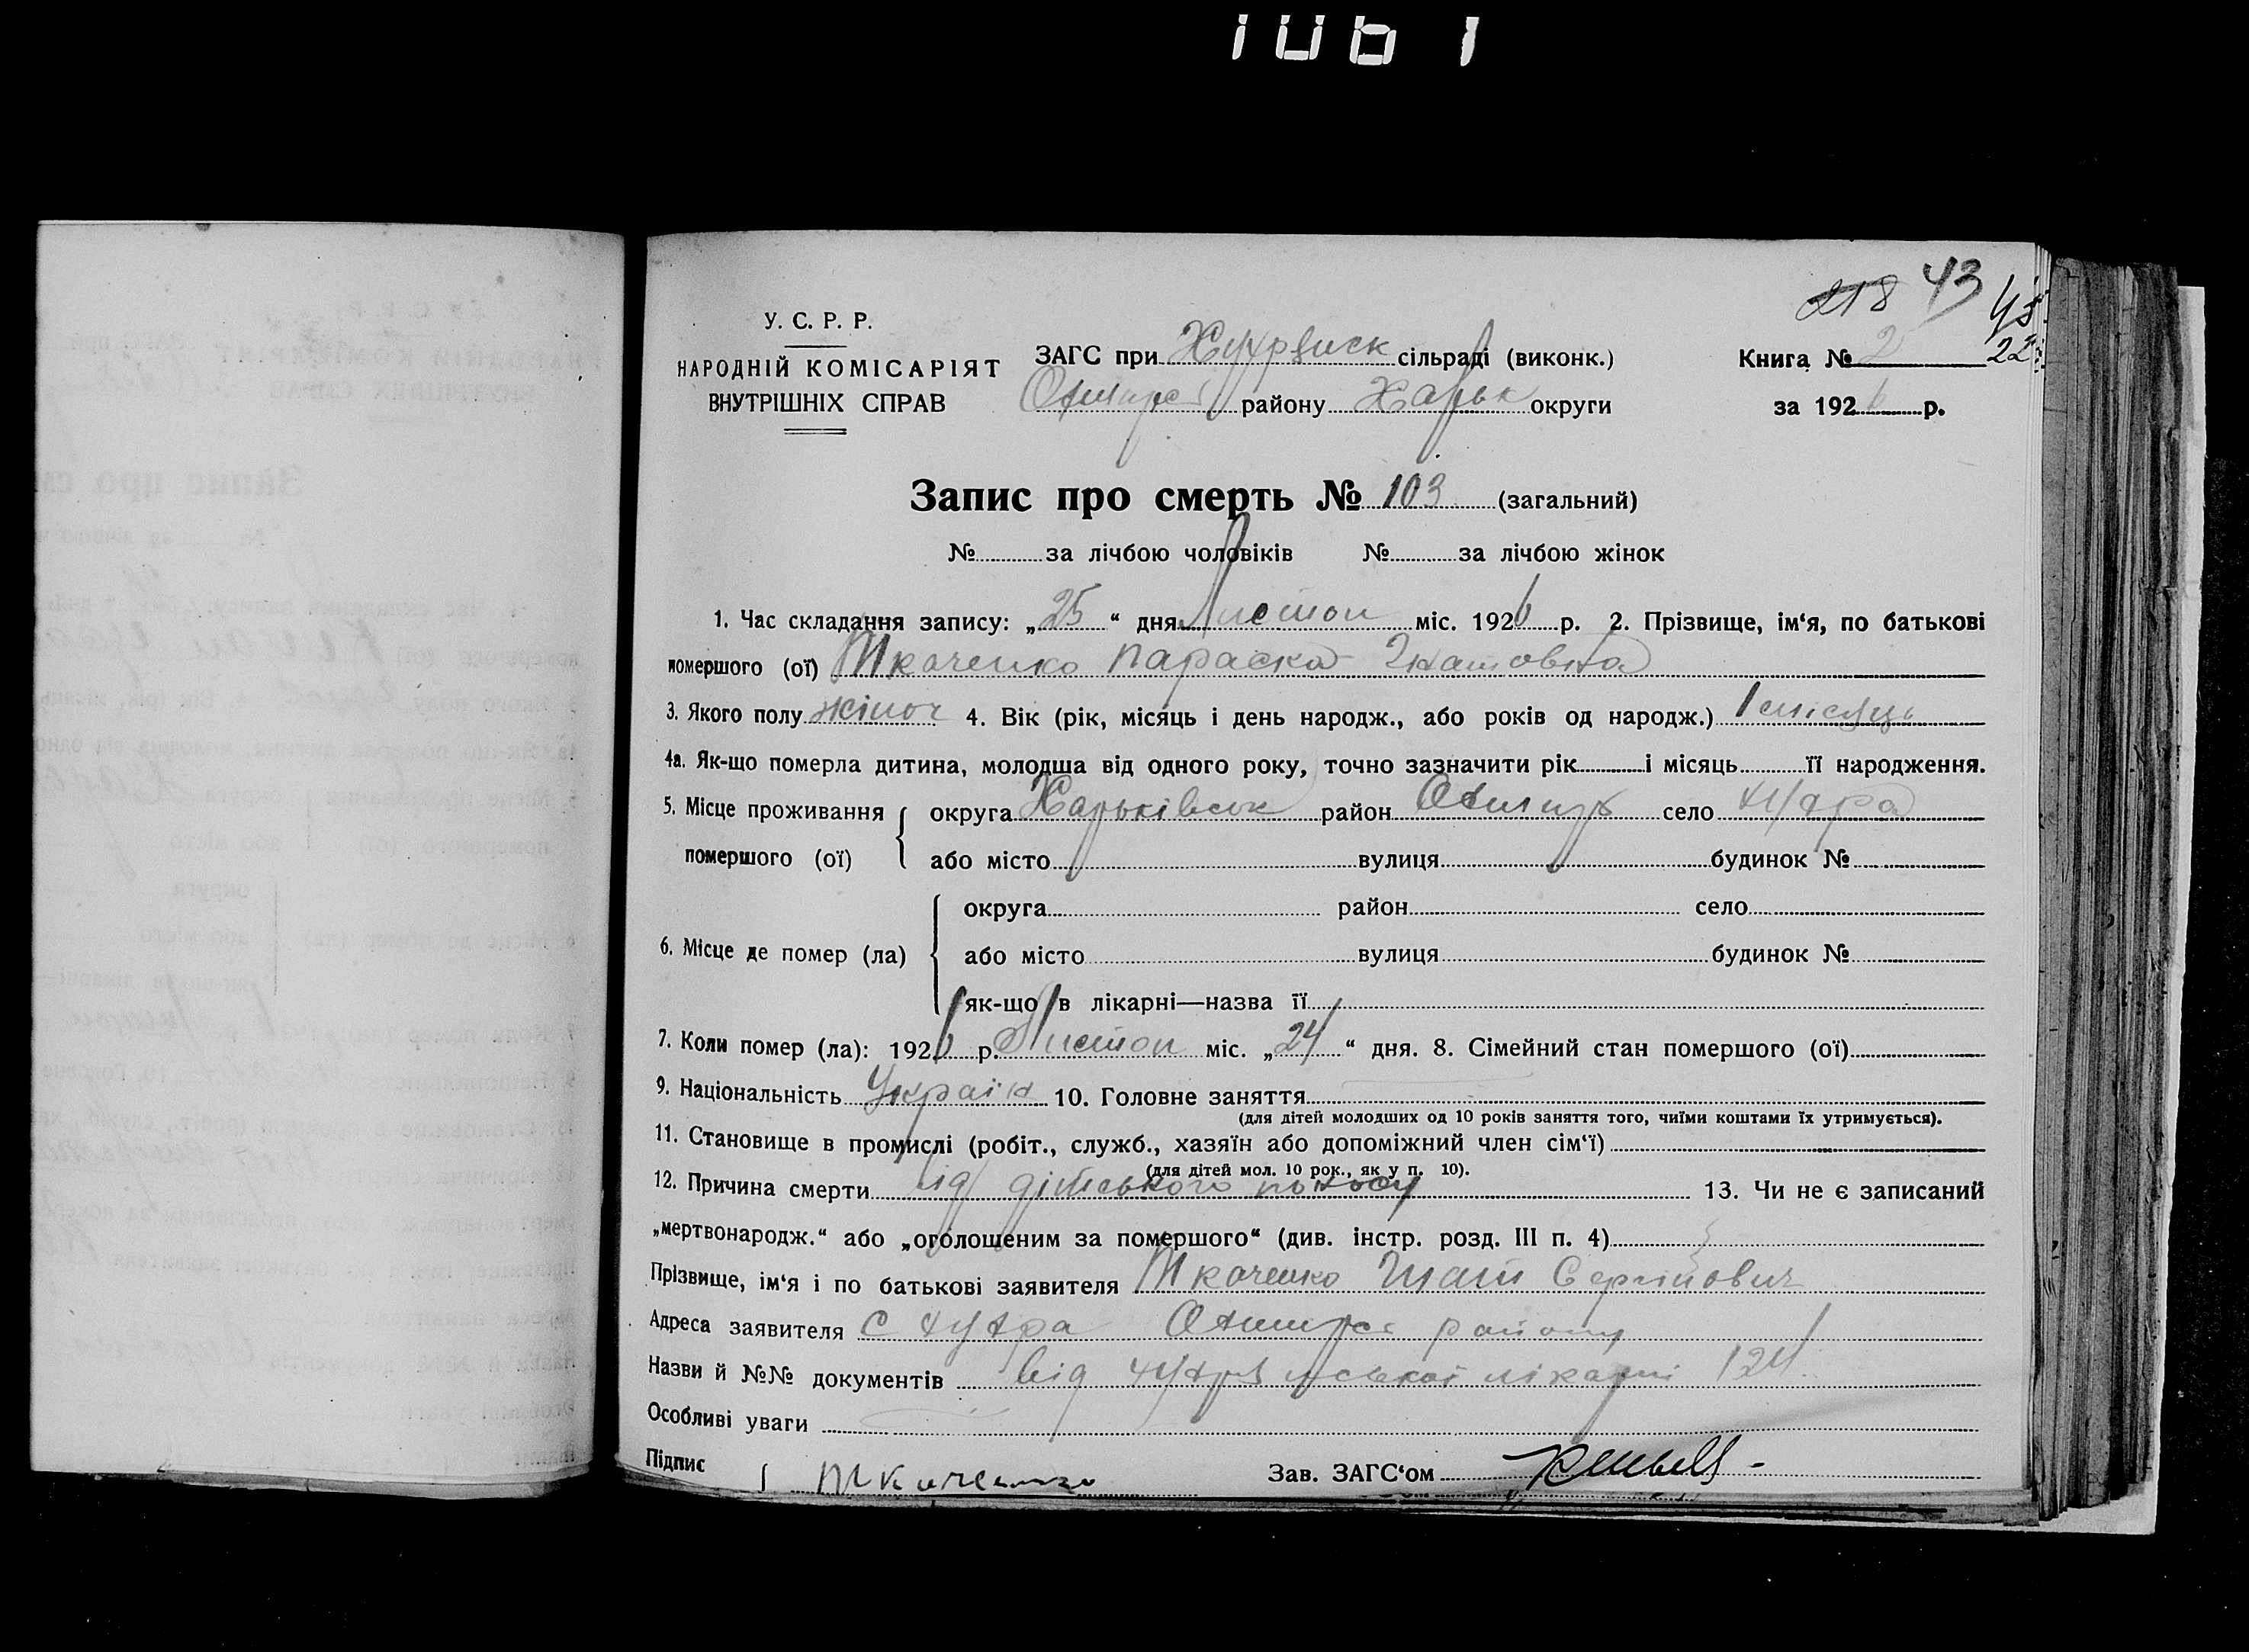 1061
218 43
У. С. Р. Р.
НАРОДНІЙ КОМІСАРІЯТ
ВНУТРІШНІХ СПРАВ
ЗАГС при сільраді (виконк.)
району Харьк округи
Книга № 2
22
за 1926 р.
Запис про смерть № 103 (загальний)
№ за лічбою чоловіків № за лічбою жінок
1. Час складання запису: „25“ дня Листоп міс. 1926 р. 2. Прізвище, ім‘я, по батькові
помершого (ої) Ткаченко Параска Гнатовна
3. Якого полу жіноч 4. Вік (рік, місяць і день народж., або років од народж.) 1 місяць
4а. Як-що померла дитина, молодша від одного року, точно зазначити рік і місяць її народження.
5. Місце проживання помершого (ої) округа Харьківськ район село
або місто вулиця будинок №
6. Місце де помер (ла) округа район село
або місто вулиця будинок №
як-що в лікарні—назва її
7. Коли помер (ла): 1926 р. Листоп міс. „24“ дня. 8. Сімейний стан помершого (ої)
9. Національність Україн 10. Головне заняття
(для дітей молодших од 10 років заняття того, чиїми коштами їх утримується).
11. Становище в промислі (робіт., служб., хазяїн або допоміжний член сім‘ї)
(для дітей мол. 10 рок., як у п. 10).
12. Причина смерти від дітського поносу 13. Чи не є записаний
„мертвонародж.“ або „оголошеним за помершого“ (див. інстр. розд. III п. 4)
Прізвище, ім‘я і по батькові заявителя Ткаченко Гнат Сергійович
Адреса заявителя с району
Назви й №№ документів від лікарні 124
Особливі уваги
Підпис Ткаченко Зав. ЗАГС‘ом